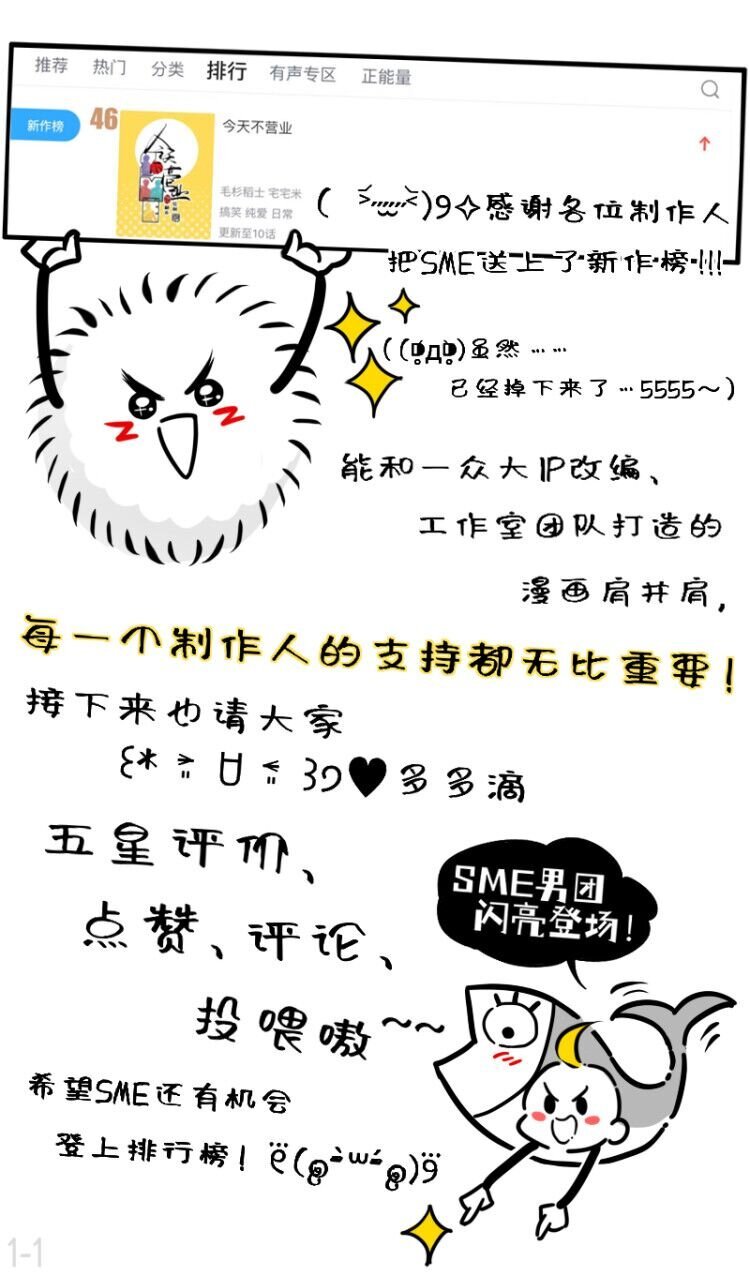 推荐 热门 分类 排行 有声专区 正能量
新作榜 46 今天不营业
今天营业
毛杉稻士 宅宅米
搞笑 纯爱 日常
更新至10话
感谢各位制作人
把SME送上了新作榜!!!
虽然……
已经掉下来了…5555～)
能和一众大IP改编、
工作室团队打造的
漫画肩并肩,
每一个制作人的支持都无比重要!
接下来也请大家
多多滴
五星评价、
点赞、评论、
投喂嗷~~
SME男团
闪亮登场!
希望SME还有机会
登上排行榜!
1-1